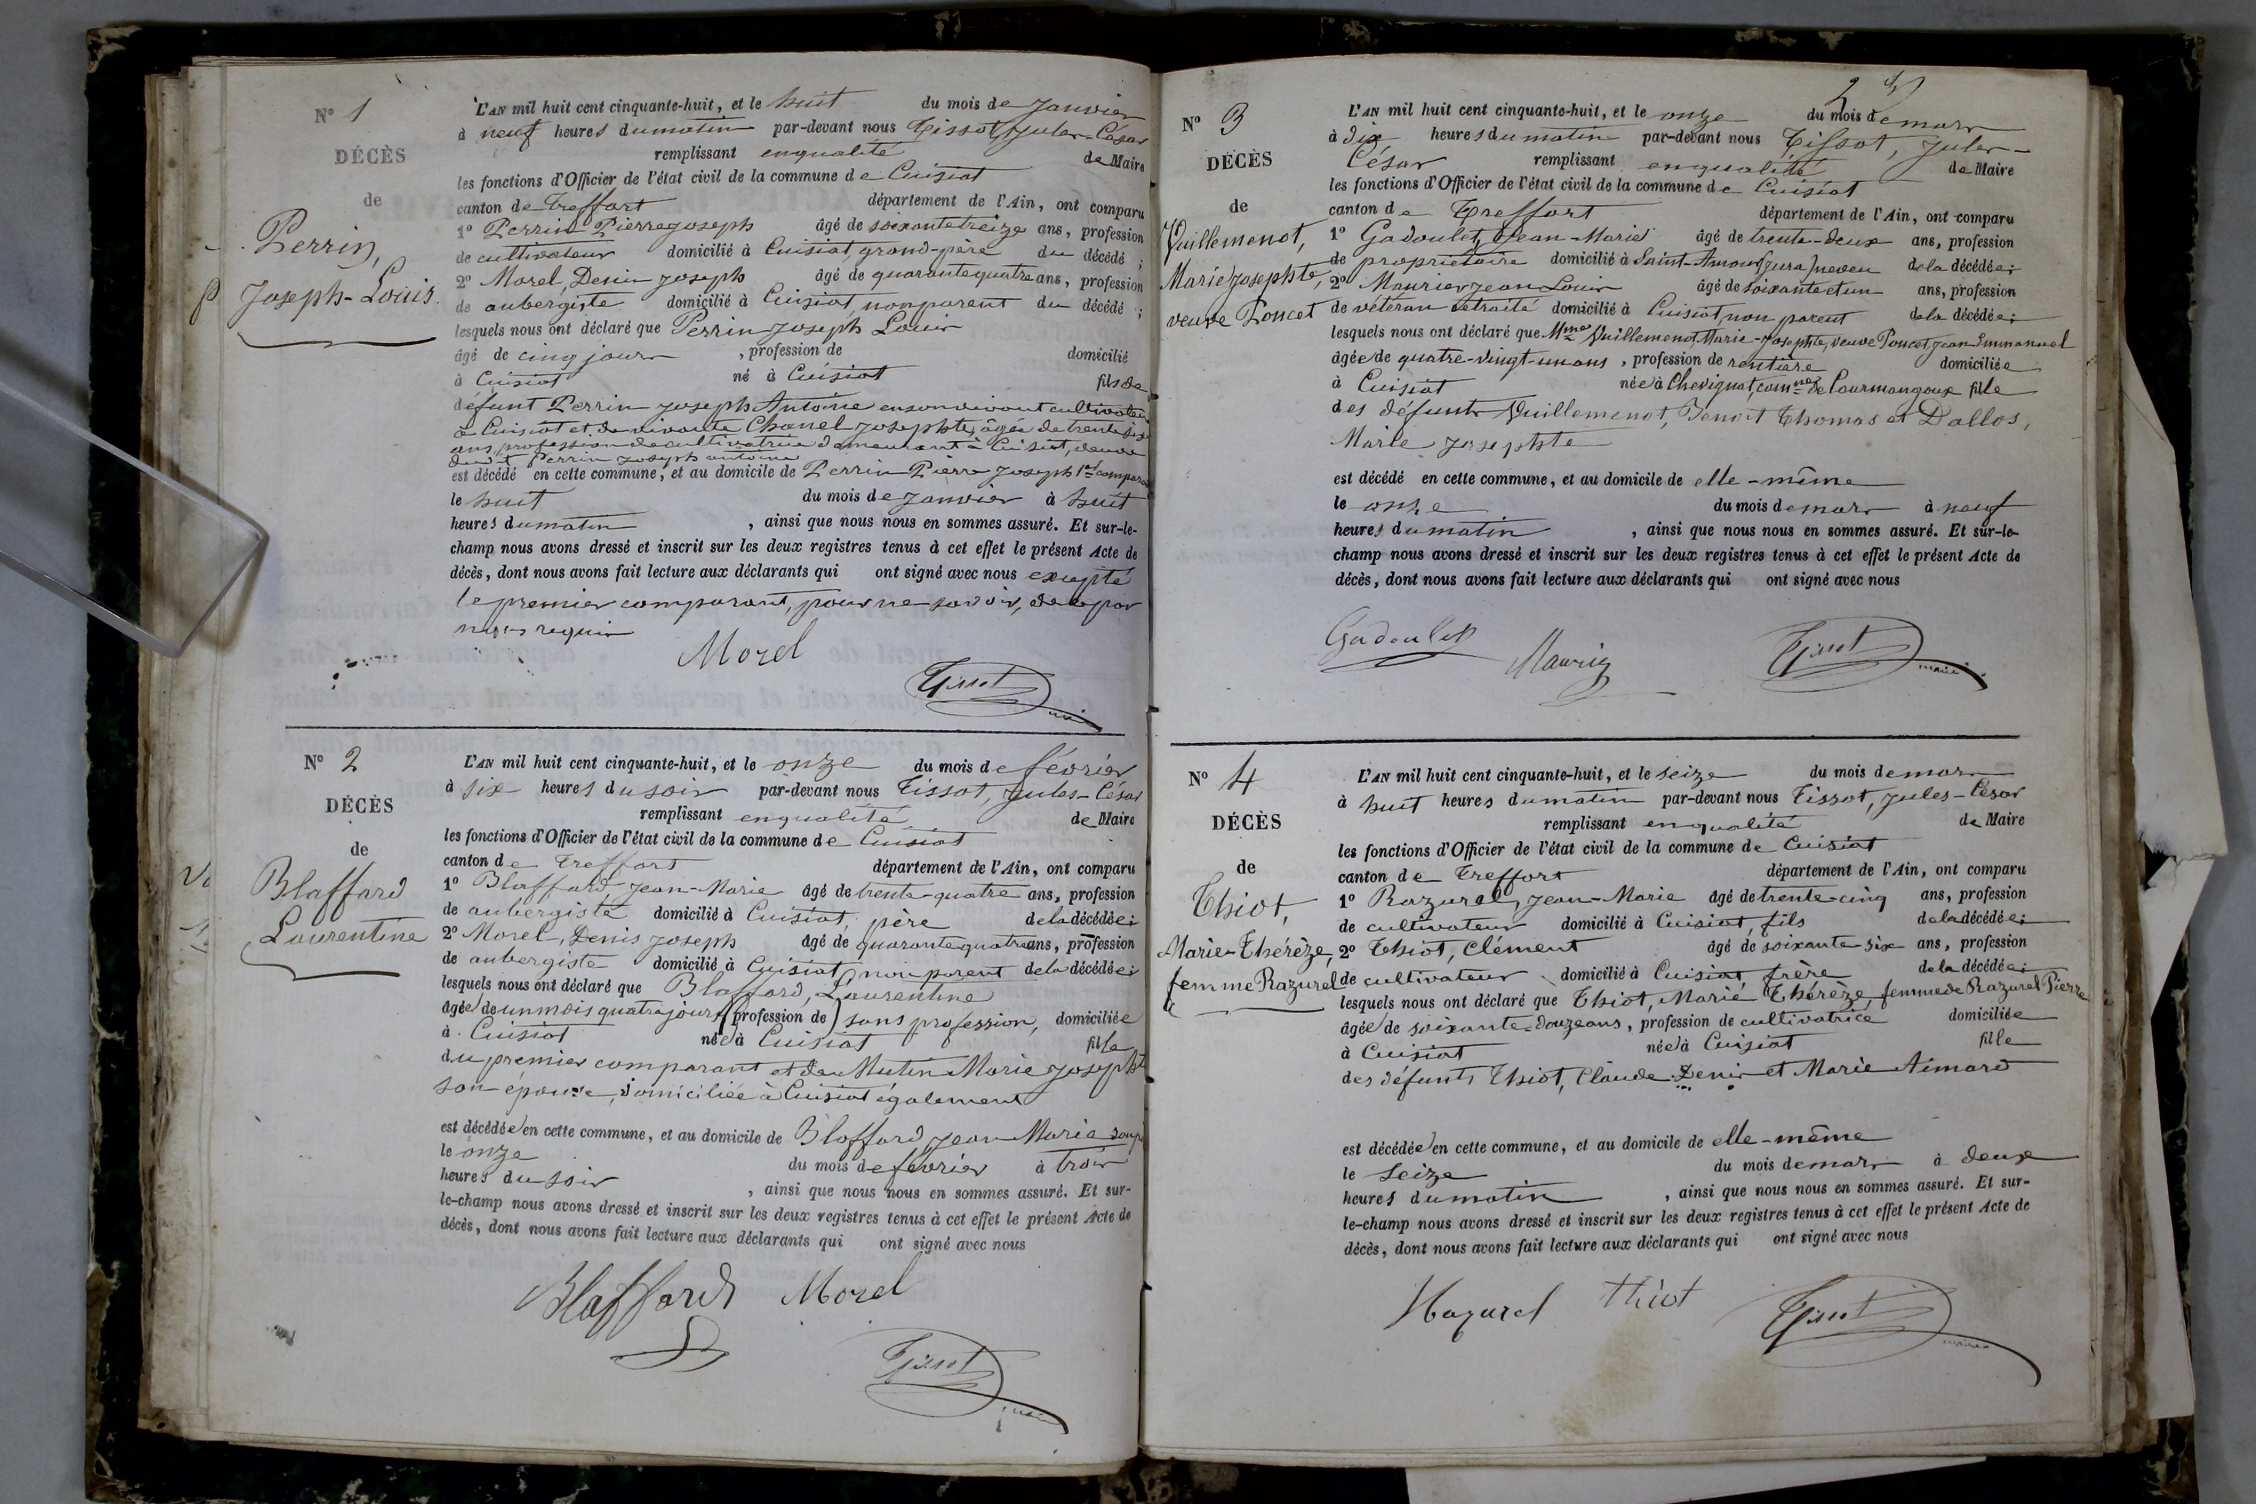 N° 1
DÉCÈS
de
Perrin,
Joseph-Louis.
L'AN mil huit cent cinquante-huit, et le huit du mois de Janvier
à neuf heures du matin par-devant nous Tissot, Jules-César
remplissant en qualité de Maire
les fonctions d'Officier de l'état civil de la commune de Cuisiat
canton de Treffort département de l'Ain, ont comparu
1° Perrin Pierre Joseph âgé de soixante treize ans, profession
de cultivateur domicilié à Cuisiat, grand-père du décédé ;
2° Morel, Denis Joseph âgé de quarante quatre ans, profession
de aubergiste domicilié à Cuisiat, non parent du décédé ;
lesquels nous ont déclaré que Perrin Joseph Louis
âgé de cinq jours , profession de domicilié
à Cuisiat né à Cuisiat fils de
défunt Perrin Joseph Antoine en son vivant cultivateur
à Cuisiat et de vivante Chanel Josephte, âgée de trente six
ans, profession de cultivatrice demeurant à Cuisiat, veuve
dudit Perrin Joseph antoine
est décédé en cette commune, et au domicile de Perrin Pierre Joseph 1er comparant
le huit du mois de Janvier à huit
heures du matin , ainsi que nous nous en sommes assuré. Et sur-le-
champ nous avons dressé et inscrit sur les deux registres tenus à cet effet le présent Acte de
décès, dont nous avons fait lecture aux déclarants qui ont signé avec nous excepté
le premier comparant, pour ne savoir, de ce par
nous requis
Morel
Tissot
maire
N° 2
DÉCÈS
de
Blaffard
Laurentine
L'AN mil huit cent cinquante-huit, et le onze du mois de février
à six heures du soir par-devant nous Tissot, Jules-César
remplissant en qualité de Maire
les fonctions d'Officier de l'état civil de la commune de Cuisiat
canton de Treffort département de l'Ain, ont comparu
1° Blaffard Jean-Marie âgé de trente-quatre ans, profession
de aubergiste domicilié à Cuisiat, père de la décédée ;
2° Morel, Denis Joseph âgé de quarante quatre ans, profession
de aubergiste domicilié à Cuisiat, non parent de la décédée ;
lesquels nous ont déclaré que Blaffard, Laurentine
âgée de un mois quatre jours (profession de) sans profession, domiciliée
à Cuisiat née à Cuisiat fille
du premier comparant et de Mutin Marie Josephte
son épouse, domiciliée à Cuisiat également
est décédée en cette commune, et au domicile de Blaffard Jean Marie
le onze du mois de février à trois
heures du soir , ainsi que nous nous en sommes assuré. Et sur-
le-champ nous avons dressé et inscrit sur les deux registres tenus à cet effet le présent Acte de
décès, dont nous avons fait lecture aux déclarants qui ont signé avec nous
Blaffard Morel
Tissot
maire
2
N° 3
DÉCÈS
de
Vuillemenot,
Marie Josephte,
veuve Poncet
L'AN mil huit cent cinquante-huit, et le onze du mois de mars
à dix heures du matin par-devant nous Tissot, Jules-
César remplissant en qualité de Maire
les fonctions d'Officier de l'état civil de la commune de Cuisiat
canton de Treffort département de l'Ain, ont comparu
1° Gadoulet, Jean-Marie âgé de trente-deux ans, profession
de propriétaire domicilié à Saint-Amour (Jura) neveu de la décédée ;
2° Maurier Jean Louis âgé de soixante et un ans, profession
de vétéran retraité domicilié à Cuisiat, non parent de la décédée ;
lesquels nous ont déclaré que Mme Vuillemenot, Marie-Josephte, veuve Poncet, Jean-Emmanuel
âgée de quatre-vingt-un ans , profession de rentière domiciliée
à Cuisiat née à Chevignat, comne de Courmangoux fille
des défunts Vuillemenot, Benoit Thomas et Dallos,
Marie Josephte
est décédé en cette commune, et au domicile de elle-même
le onze du mois de mars à neuf
heures du matin , ainsi que nous nous en sommes assuré. Et sur-le-
champ nous avons dressé et inscrit sur les deux registres tenus à cet effet le présent Acte de
décès, dont nous avons fait lecture aux déclarants qui ont signé avec nous
Gadoulet
Tissot
maire
N° 4
DÉCÈS
de
Thiot,
Marie-Thérèze,
femme Razurel
L'AN mil huit cent cinquante-huit, et le seize du mois de mars
à huit heures du matin par-devant nous Tissot, Jules-César
remplissant en qualité de Maire
les fonctions d'Officier de l'état civil de la commune de Cuisiat
canton de Treffort département de l'Ain, ont comparu
1° Razurel, Jean-Marie âgé de trente-cinq ans, profession
de cultivateur domicilié à Cuisiat, fils de la décédée ;
2° Thiot, Clément âgé de soixante-six ans, profession
de cultivateur domicilié à Cuisiat, frère de la décédée ;
lesquels nous ont déclaré que Thiot, Marie Thérèze, femme de Razurel Pierre
âgée de soixante-douze ans, profession de cultivatrice domiciliée
à Cuisiat née à Cuisiat fille
des défunts Thiot, Claude Denis et Marie Aimard
est décédée en cette commune, et au domicile de elle-même
le seize du mois de mars à deux
heures du matin , ainsi que nous nous en sommes assuré. Et sur-
le-champ nous avons dressé et inscrit sur les deux registres tenus à cet effet le présent Acte de
décès, dont nous avons fait lecture aux déclarants qui ont signé avec nous
Razurel Thiot
Tissot
maire